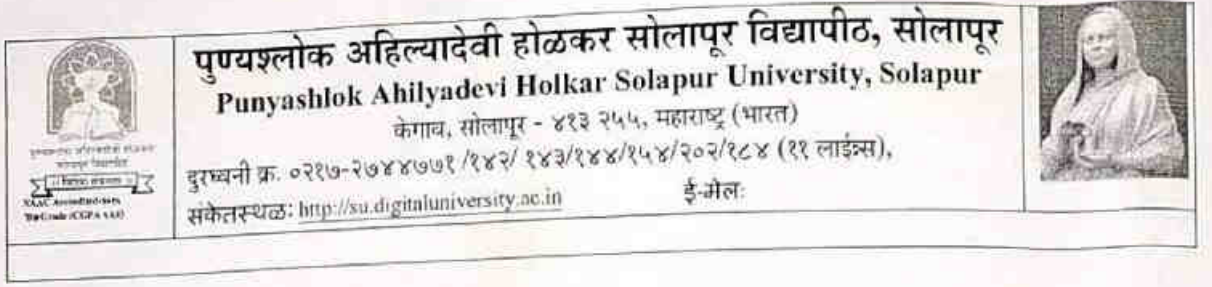 पुण्यश्लोक अहिल्यादेवी होळकर सोलापूर विद्यापीठ, सोलापूर
Punyashlok Ahilyadevi Holkar Solapur University, Solapur
केगाव, सोलापूर - ४१३ २५५, महाराष्ट्र (भारत)
दुरध्वनी क्र. ०२१७-२७४४७७१ /१४२/ १४३/१४४/१५४/२०२/१८४ (११ लाईन्स),
संकेतस्थळः http://su.digitaluniversity.ac.in ई-मेलः